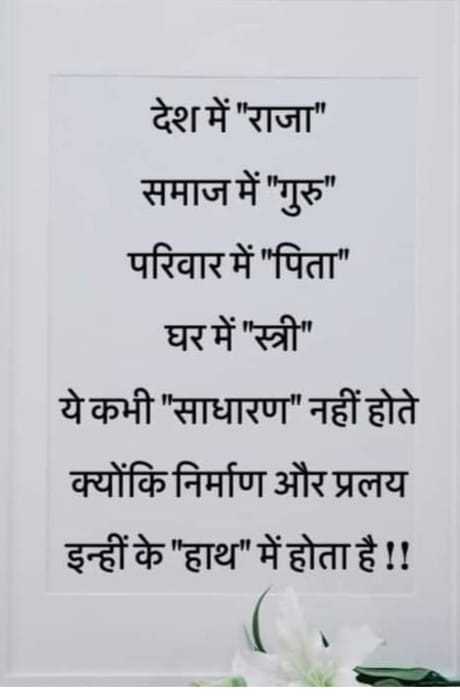 देश में "राजा"
समाज में "गुरु"
परिवार में "पिता"
घर में "स्त्री"
ये कभी "साधारण" नहीं होते
क्योंकि निर्माण और प्रलय
इन्हीं के "हाथ" में होता है !!